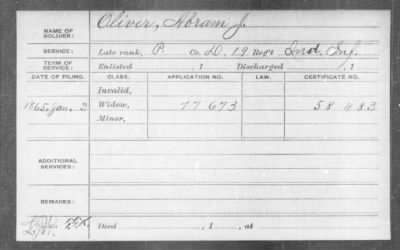 NAME OF SOLDIER: Oliver, Abram J.
SERVICE: Late rank, P. Co. D, 19 Reg't Ind. Inf.
TERM OF SERVICE: Enlisted , 1 Discharged , 1
DATE OF FILING. CLASS. APPLICATION NO. LAW. CERTIFICATE NO.
Invalid,
1865, Jan. 3 Widow, 77 673 58 483
Minor,
ADDITIONAL SERVICES:
REMARKS:
Died , 1 , at